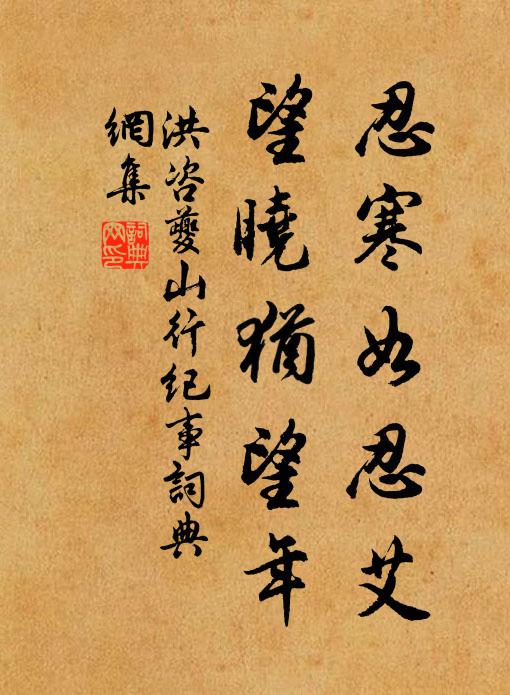 忍寒如忍艾
望曉猶望年
洪咨夔山行纪事詞典
網集
詞典
网印